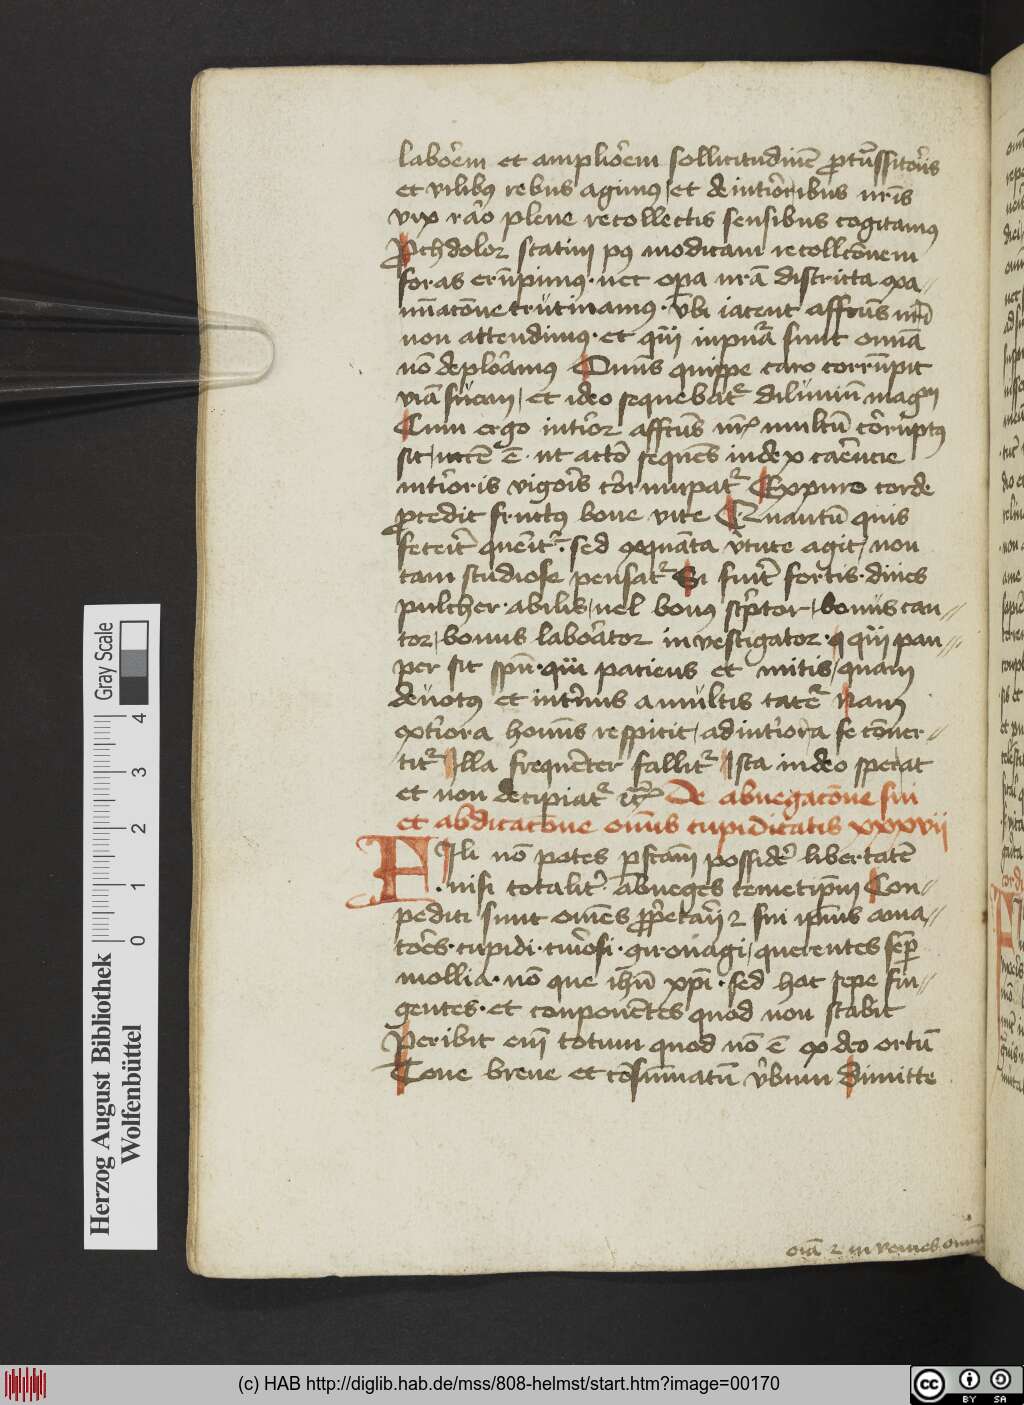 laborem et ampliorem sollicitudinē
et vilibus rebus agimus et de interioribus nris
vix raro plene recollectis sensibus cogitamus
Pchdolor statim pꝰ modicam recollcōnem
foras erūpimus · nec opa nrā districta exa//
minacōne trutinamus · vbi iacent affcūs nri
non attendimus · et qm inpura sunt omnia
nō deploramus Omnis quippe caro corrūpit
viā suam / et ideo sequebatr diluuium magm
Cum ergo interior affcūs nr multū corruptus
sit / necē ē · ut actō sequens index carencie
interioris vigoris corrumpatr Ex puro corde
procedit fructus bone vite Quantū quis
fecerit queritr · sed ex quanta virtute agit / non
tam studiose pensatr Si fuit fortis · diues
pulcher · abilis / uel bonus scptor / bonus can//
tor / bonus laborator investigator · q̄ pau//
per sit spū · q̄ paciens et mitis / quam
deuotus et internus a multis tacetr Nam
exteriora hominis respicit / ad interiora se conuer//
titr Illa frequenter fallitr Ista in deo sperat
et non decipiatr etc̄ De abnegacōne sui
et abdicacōne omnis cupiditatis xxxvii
Fili nō potes pfectam possidere libertatē
· nisi totaliter · abneges temetipm Con//
pediti sunt omēs prietarii ⁊ sui ipsius ama//
tores · cupidi · curiosi · girouagi / querentes semp
mollia · nō que ihū xpi · sed hoc sepe fin//
gentes · et conponentes quod non stabit
Peribit enī totum quod nō ē ex deo ortū
Tene breue et cōsummatū vbum Dimitte
oīa ⁊ inuenies omnia
Gray Scale
0 1 2 3 4
Herzog August Bibliothek
Wolfenbüttel
(c) HAB http://diglib.hab.de/mss/808-helmst/start.htm?image=00170
cc BY SA